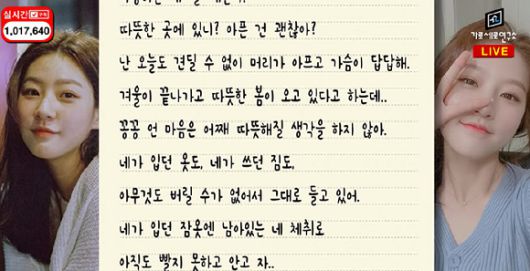 실시간
1,017,640
가로세로연구소
LIVE
따뜻한 곳에 있니? 아픈 건 괜찮아?
난 오늘도 견딜 수 없이 머리가 아프고 가슴이 답답해.
겨울이 끝나가고 따뜻한 봄이 오고 있다고 하는데..
꽁꽁 언 마음은 어째 따뜻해질 생각을 하지 않아.
네가 입던 옷도, 네가 쓰던 짐도,
아무것도 버릴 수가 없어서 그대로 들고 있어.
네가 입던 잠옷엔 남아있는 네 체취로
아직도 빨지 못하고 안고 자..